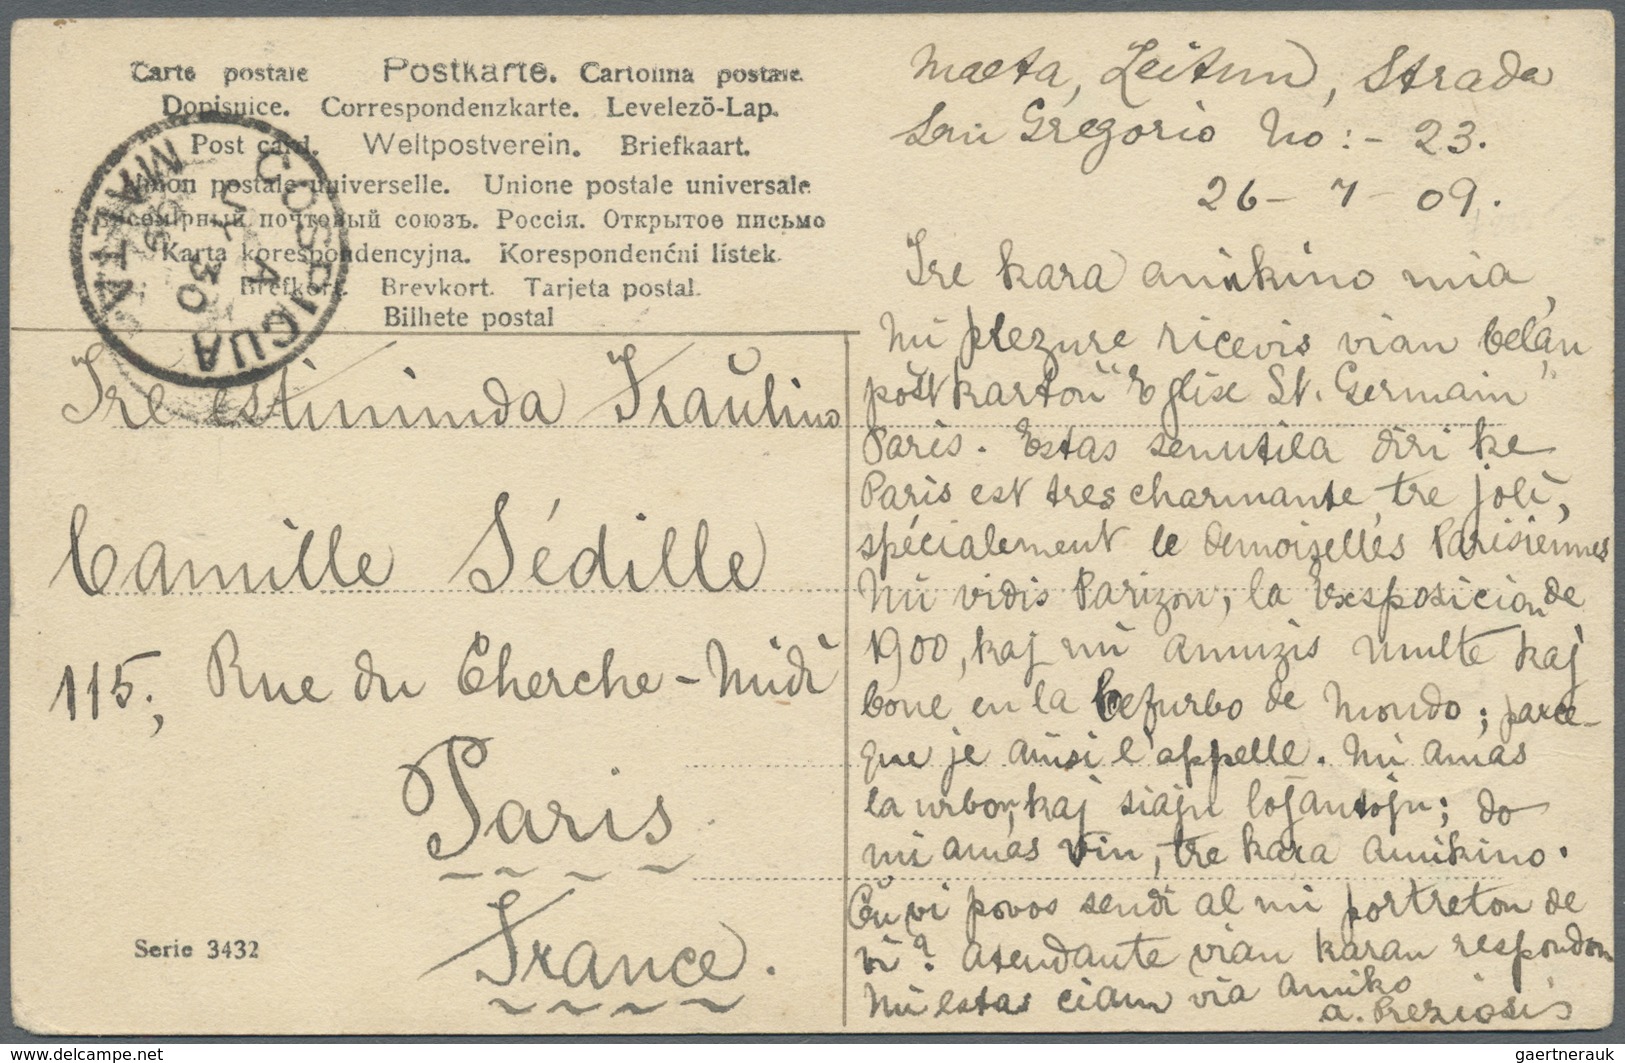 Carte postale Postkarte. Cartolina postale
Dopisnice. Correspondenzkarte. Levelezö-Lap.
Post card. Weltpostverein. Briefkaart.
Union postale universelle. Unione postale universale
Всемірный почтовый союзъ. Россія. Открытое письмо
Karta korespondencyjna. Korespondenćni listek.
Brefkort. Brevkort. Tarjeta postal.
Bilhete postal
COSPICUA
MALTA
JL 30
Tre estiminda Fraŭlino
Camille Sédille
115, Rue du Cherche-Midi
Paris
France.
Serie 3432
Malta, Zeitun, Strada
San Gregorio No:- 23.
26 - 7 - 09.
Tre kara amikino mia,
Mi plezure ricevis vian belan
poŝtkarton "Eglise St. Germain"
Paris. Estas senutila diri ke
Paris est tres charmante, tre joli,
spécialement le demoizelles Parisiennes
Mi vidis Parizon, la Exsposicion de
1900, kaj mi amuzis multe kaj
bone en la ĉefurbo de Mondo; parce-
que je ainsi l'appelle. Mi amas
la urbon, kaj siajn loĝantojn; do
mi amas vin, tre kara amikino.
Ĉu vi povos sendi al mi portreton de
vi? Atendante vian karan respondon
Mi estas ciam via amiko
A. Preziosis
gaertnerauk@delcampe.com